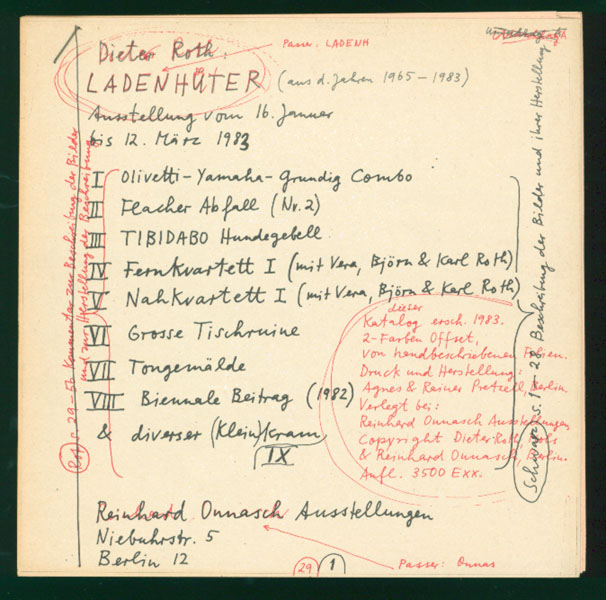 Dieter Roth:
Passer: LADENH
LADENHÜTER (aus d. Jahren 1965–1983)
Ausstellung vom 16. Januar
bis 12. März 1983
I Olivetti-Yamaha-Grundig Combo
II Flacher Abfall (Nr. 2)
III TIBIDABO Hundegebell
IV Fernkvartett I (mit Vera, Björn & Karl Roth)
V Nahkvartett I (mit Vera, Björn & Karl Roth)
VI Grosse Tischruine
VII Tongemälde
VIII Biennale Beitrag (1982)
& diverser (Klein)kram
IX
dieser
Katalog ersch. 1983.
2-Farben Offset,
von handbeschriebenen Folien.
Druck und Herstellung:
Agnes & Rainer Pretzell, Berlin.
Verlegt bei:
Reinhard Onnasch Ausstellungen
Copyright Dieter Roth,
& Reinhard Onnasch, Berlin.
Aufl. 3500 Exx.
Reinhard Onnasch Ausstellungen
Niebuhrstr. 5
Berlin 12
Passer: Onnas
29 1
Rot, S. 29–56 Kommentar zur Beschreibung der Bilder
und zur Herstellung der Beschreibung
Schwarz, S. 1–28 Beschreibung der Bilder und ihrer Herstellung